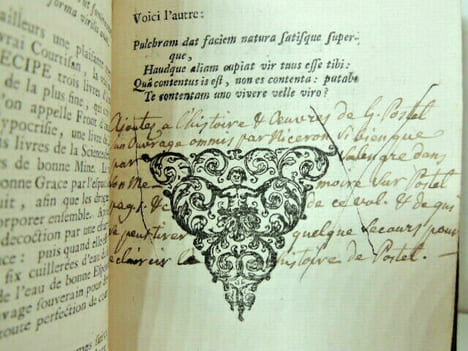 ailleurs une plaisante
vrai Courtisan, la
ECIPE trois livres d
de la plus fine, qui
on appelle Froot d
ypocrisie, une livre de
livres de la Science de
rs de bonne Mine. Le
nne Grace par l'épi
uit, afin que les drog
orporer ensemble. A
decoction par une cha
nce: puis quand elle
fix cuillerées d'eau
de l'eau de bonne Esp
vage souverain pour d
toute perfection de cor
Voici l'autre:
Pulchram dat faciem natura satisque super-
que,
Haudque aliam cupiat vir tuus esse tibi:
Quâ contentus is est, non es contenta: putabo
Te contentam uno vivere velle viro?
Ajoutés a l'histoire & Œuvres de G. Postel
un Ouvrage ommus par Niceron si bien que
par Salengre dans
son Me moire sur Postel
pag. & de ce vol. & de qui
peut tirer quelque secours pour
eclaircir l'histoire de Postel.